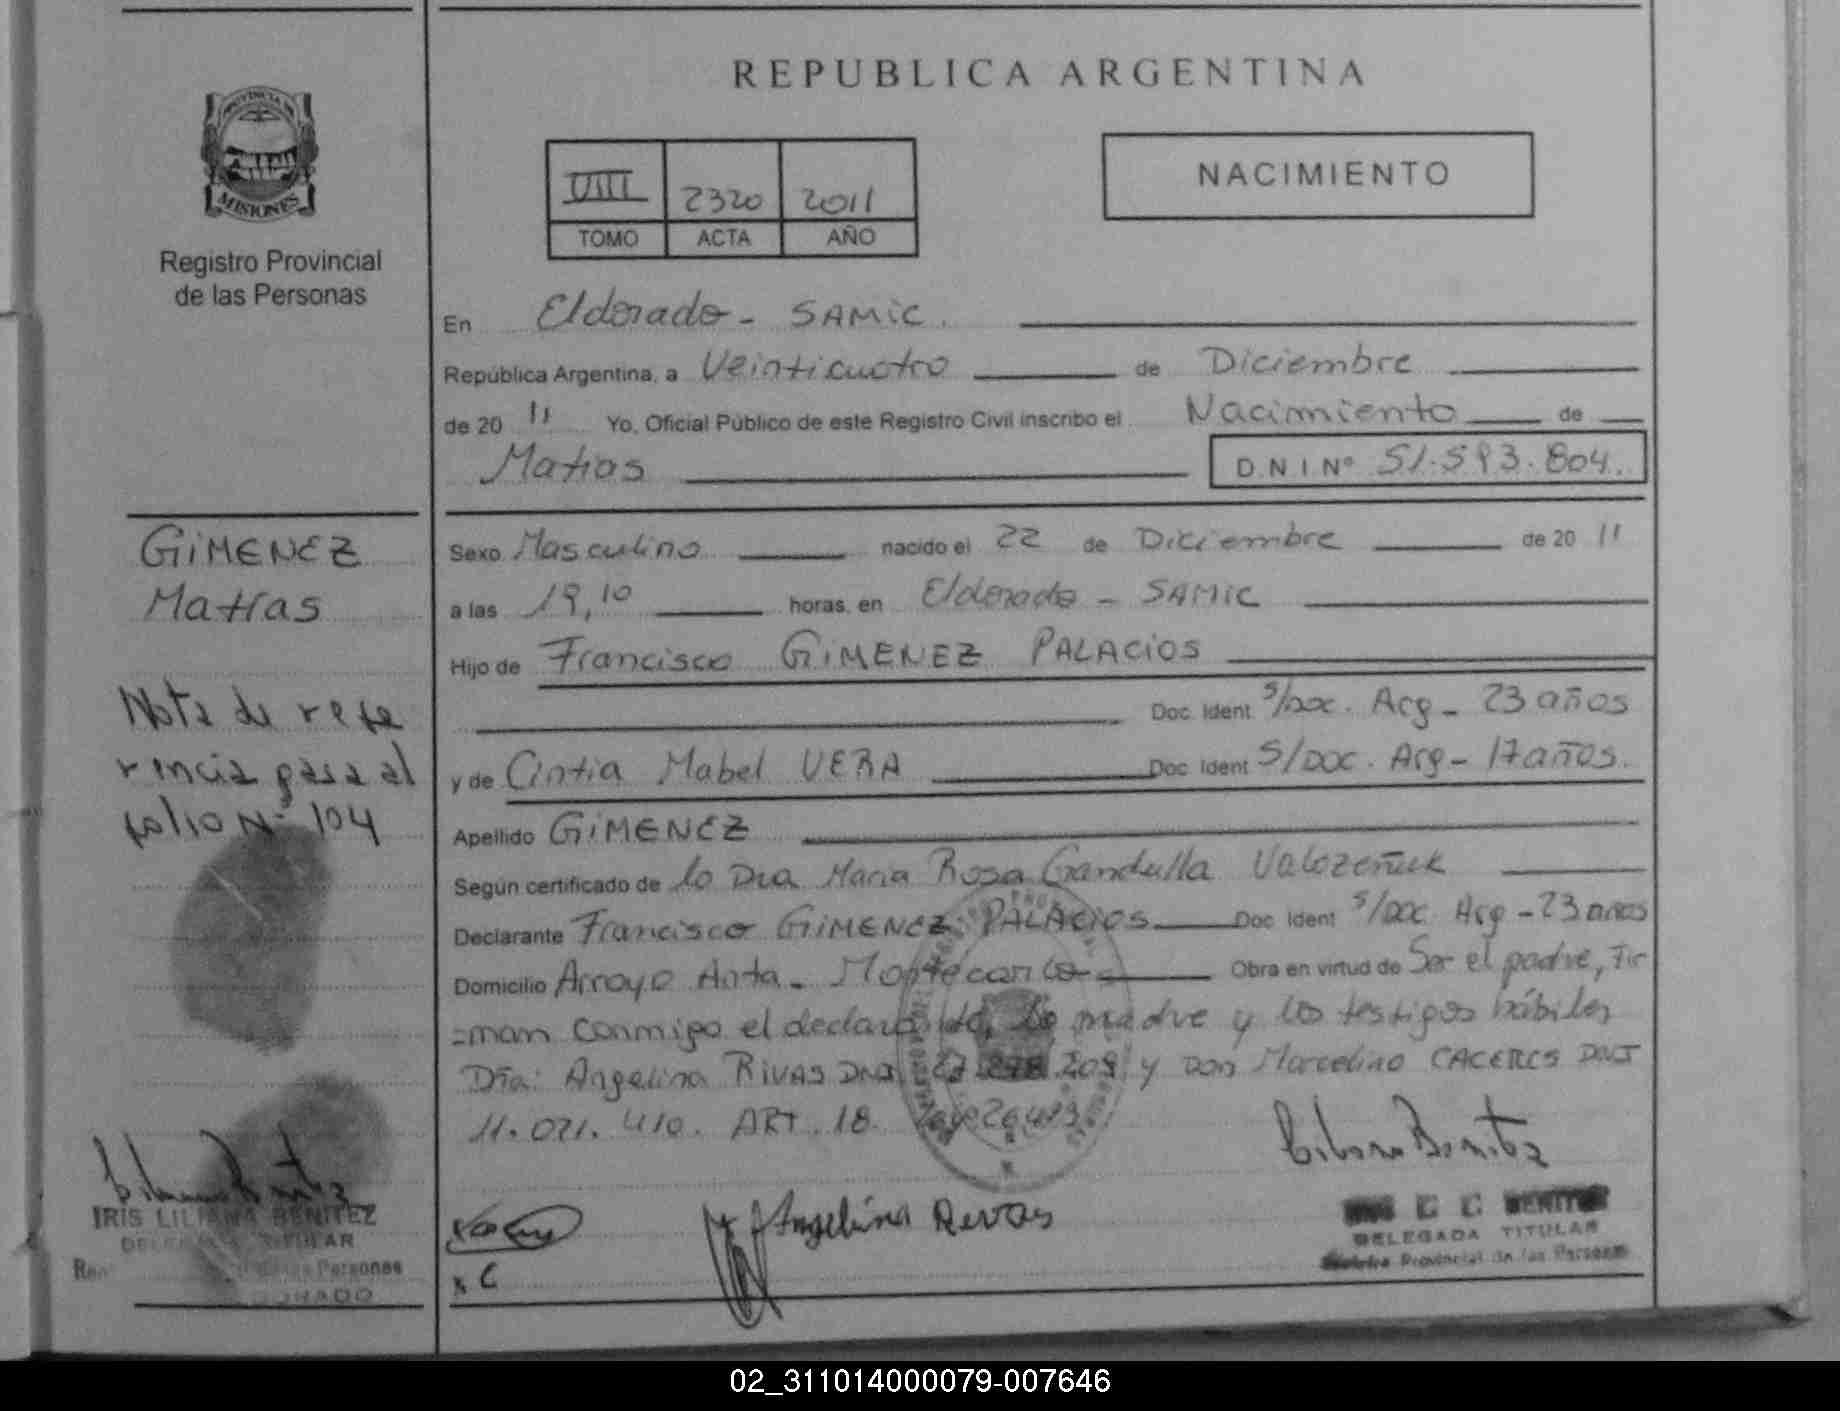 REPUBLICA ARGENTINA
PROVINCIA DE
MISIONES
Registro Provincial
de las Personas
VIII 2320 2011
TOMO ACTA AÑO
NACIMIENTO
En Eldorado - SAMIC.
República Argentina, a Veinticuatro de Diciembre
de 20 11 Yo, Oficial Público de este Registro Civil inscribo el Nacimiento de
Matias D.N.I Nº 51.593.804.
GIMENEZ
Matias
Nota de refe
rencia pasa al
folio Nº 104
Sexo Masculino nacido el 22 de Diciembre de 20 11
a las 19,10 horas, en Eldorado - SAMIC
Hijo de Francisco GIMENEZ PALACIOS
Doc. Ident. S/Doc. Arg - 23 años
y de Cintia Mabel VERA Doc. Ident. S/DOC. Arg - 17 años.
Apellido GIMENEZ
Según certificado de la Dra Maria Rosa Gandulla
Declarante Francisco GIMENEZ PALACIOS Doc. Ident. S/DOC Arg - 23 años
Domicilio Arroyo Anta - Montecarlo - Obra en virtud de Ser el padre, Fir
=man conmigo el declarante, la madre y los testigos hábiles
Dña: Angelina RIVAS DNI y Don Marcelino CACERES DNI
11.021.410. ART. 18. Ley 26413
Liliana Benitez
IRIS LILIANA BENITEZ
DELEGADA TITULAR
Personas
ELDORADO
Angelina Revas
x C
Liliana Benitez
BENITEZ
DELEGADA TITULAR
Registro Provincial de las Personas
02_311014000079-007646